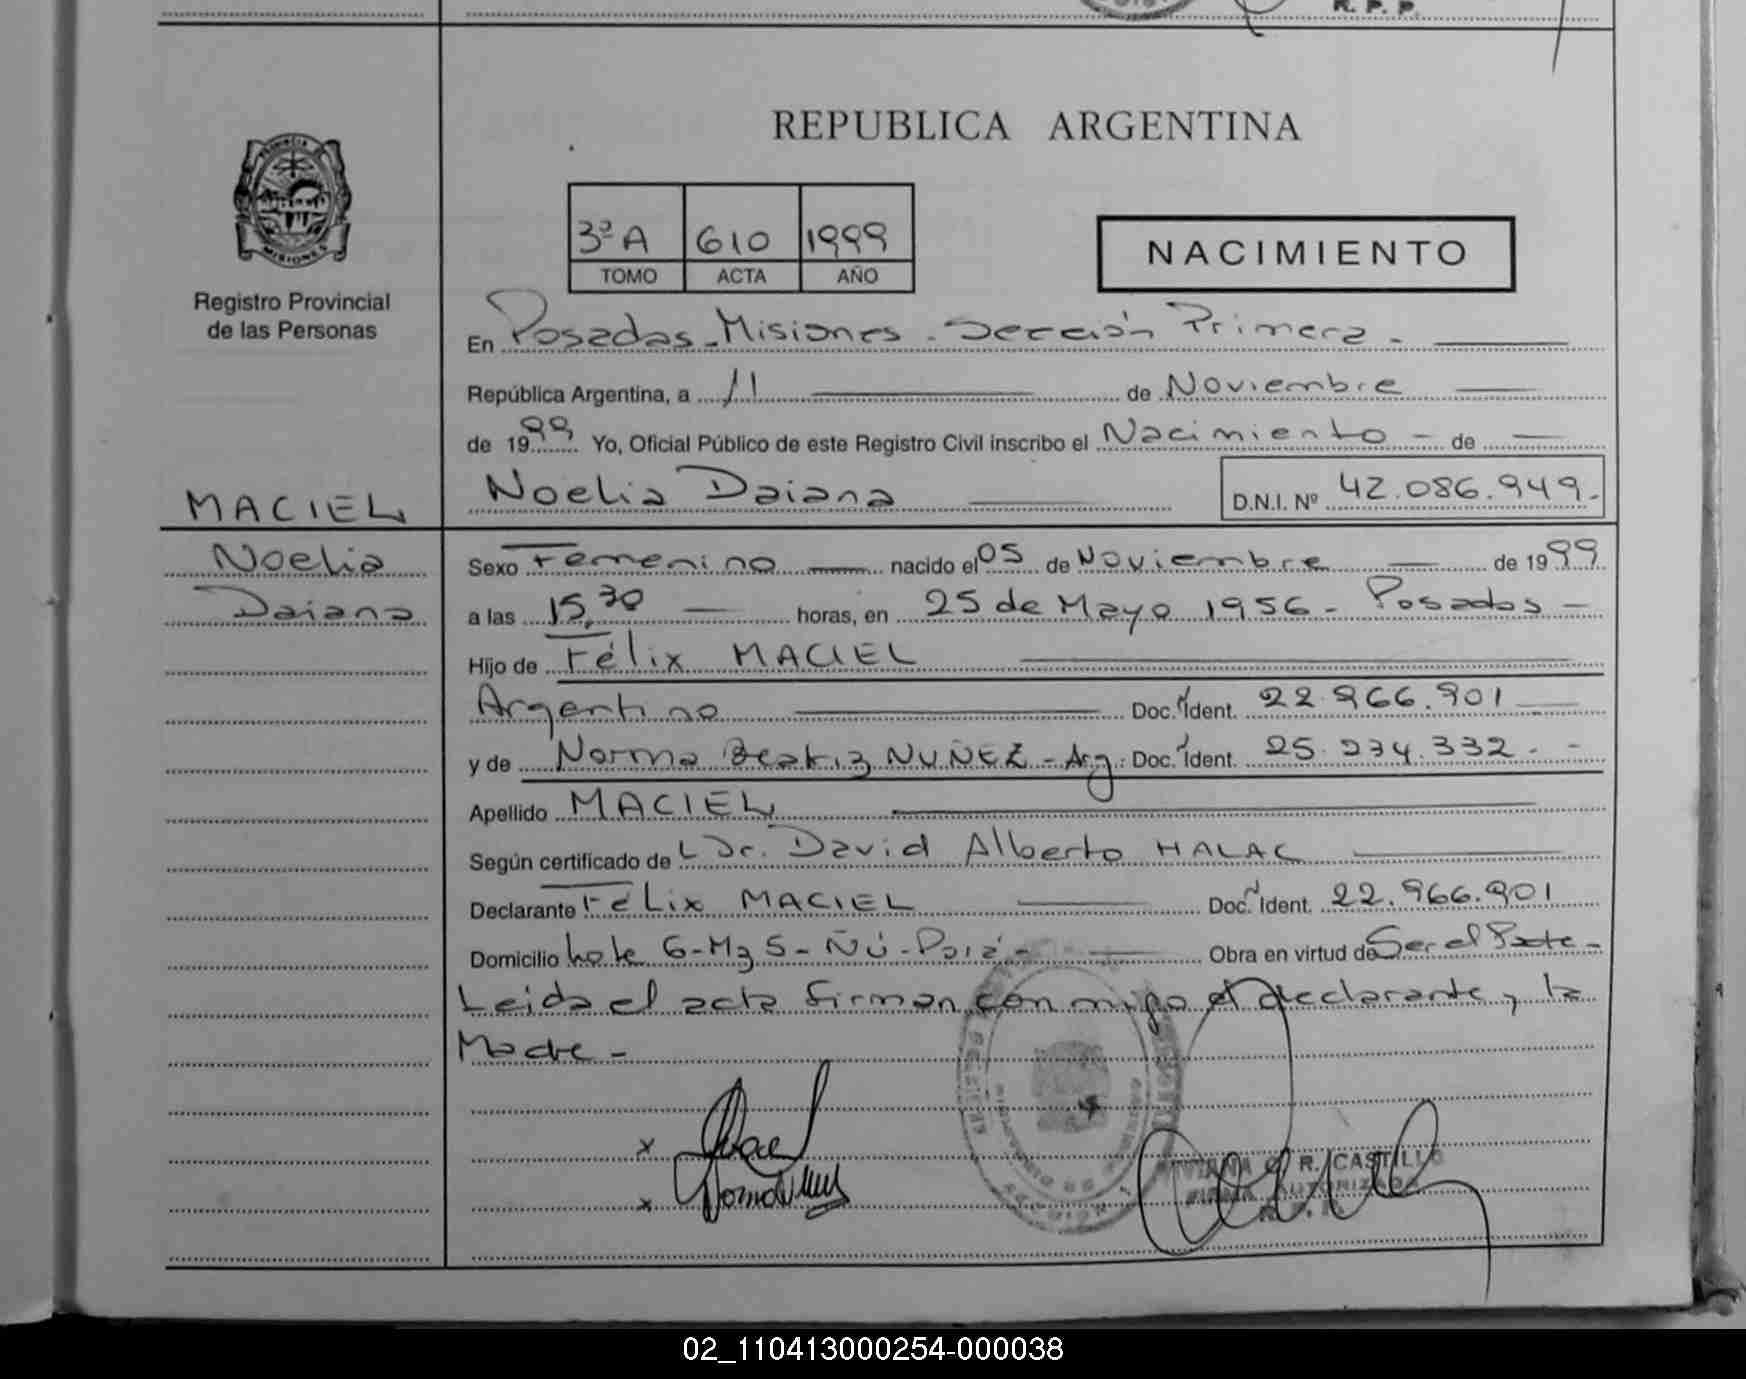 R. P. P.
REPUBLICA ARGENTINA
PROVINCIA
MISIONES
Registro Provincial
de las Personas
3º A 610 1999
TOMO ACTA AÑO
NACIMIENTO
En Posadas - Misiones - Sección Primera -
República Argentina, a 11 de Noviembre
de 1999 Yo, Oficial Público de este Registro Civil inscribo el Nacimiento - de
MACIEL Noelia Daiana D.N.I. Nº 42.086.949.-
Noelia Sexo Femenino nacido el 05 de Noviembre de 1999
Daiana a las 15,30 horas, en 25 de Mayo 1956 - Posadas -
Hijo de Félix MACIEL
Argentino Doc. Ident. 22.966.901
y de Norma Beatriz NUÑEZ - Arg. Doc. Ident. 25.234.332. -
Apellido MACIEL
Según certificado de L Dr. David Alberto HALAC
Declarante Félix MACIEL Doc. Ident. 22.966.901
Domicilio Lote 6-Mz 5- Ñú-Porá - Obra en virtud de Ser el Padre -
Leida el acta firman conmigo el declarante y la
Madre -
x
x
R. CASTILLO
FIRMA AUTORIZADA
02_110413000254-000038